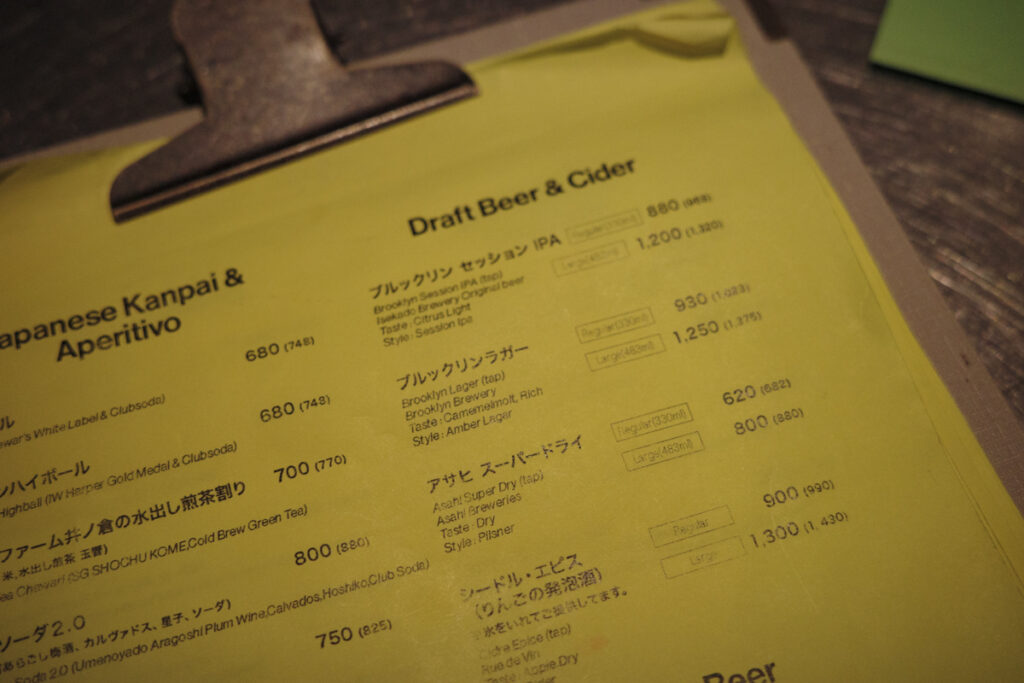 Japanese Kanpai &
Aperitivo
680 (748)
ewar's White Label & Clubsoda)
680 (748)
ンハイボール
Highball (IW Harper Gold Medal & Clubsoda)
700 (770)
ファーム井ノ倉の水出し煎茶割り
米,水出し煎茶 玉響)
ea Chawari (SG SHOCHU KOME,Cold Brew Green Tea)
800 (880)
ソーダ2.0
あらごし梅酒、カルヴァドス、星子、ソーダ)
Soda 2.0 (Umenoyado Aragoshi Plum Wine,Calvados,Hoshiko,Club Soda)
750 (825)
Draft Beer & Cider
ブルックリン セッション IPA Regular(330ml) 880 (968)
Large(483ml) 1,200 (1,320)
Brooklyn Session IPA (tap)
Isekado Brewery Original beer
Taste : Citrus Light
Style : Session Ipa
ブルックリンラガー Regular(330ml) 930 (1,023)
Large(483ml) 1,250 (1,375)
Brooklyn Lager (tap)
Brooklyn Brewery
Taste : Camemelmolt, Rich
Style : Amber Lager
アサヒ スーパードライ Regular(330ml) 620 (682)
Large(483ml) 800 (880)
Asahi Super Dry (tap)
Asahi Breweries
Taste : Dry
Style : Pilsner
シードル・エピス Regular 900 (990)
(りんごの発泡酒) Large 1,300 (1,430)
氷をいれてご提供してます。
Cidre Epice (tap)
Rue de Vin
Taste : Apple,Dry
Beer